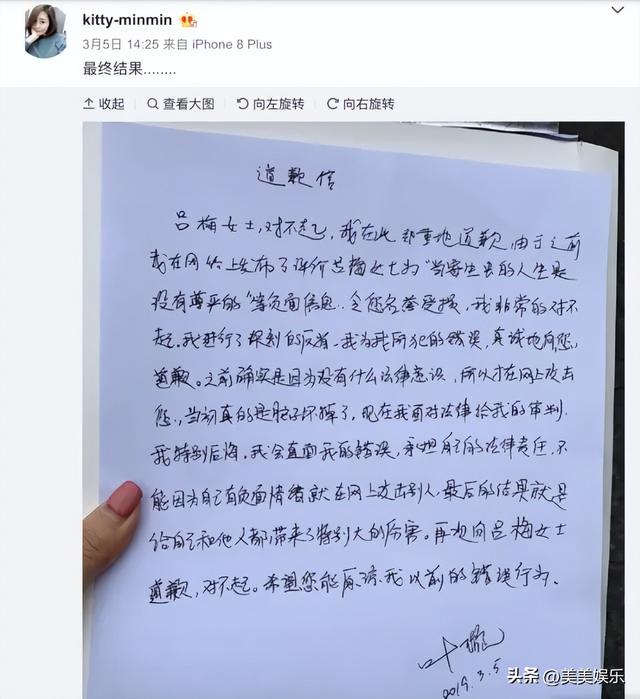 kitty-minmin
3月5日 14:25 来自 iPhone 8 Plus
最终结果........
收起 查看大图 向左旋转 向右旋转
道歉信
吕梅女士,对不起,我在此郑重地道歉,由于之前
我在网络上发布了评价吕梅女士为“当寄生虫的人生是
没有尊严的”等负面信息,令您名誉受损,我非常的对不
起。我进行了深刻的反省,我为我所犯的错误,真诚地向您
道歉。之前确实是因为没有什么法律意识,所以才在网上攻击
您,当初真的是脑子坏掉了,现在我面对法律给我的审判,
我特别后悔。我会直面我的错误,承担自己的法律责任,不
能因为自己有负面情绪就在网上攻击别人,最后的结果就是
给自己和他人都带来了特别大的伤害。再次向吕梅女士
道歉,对不起。希望您能原谅我以前的错误行为。
叶
2019.3.5
头条 @美美娱乐